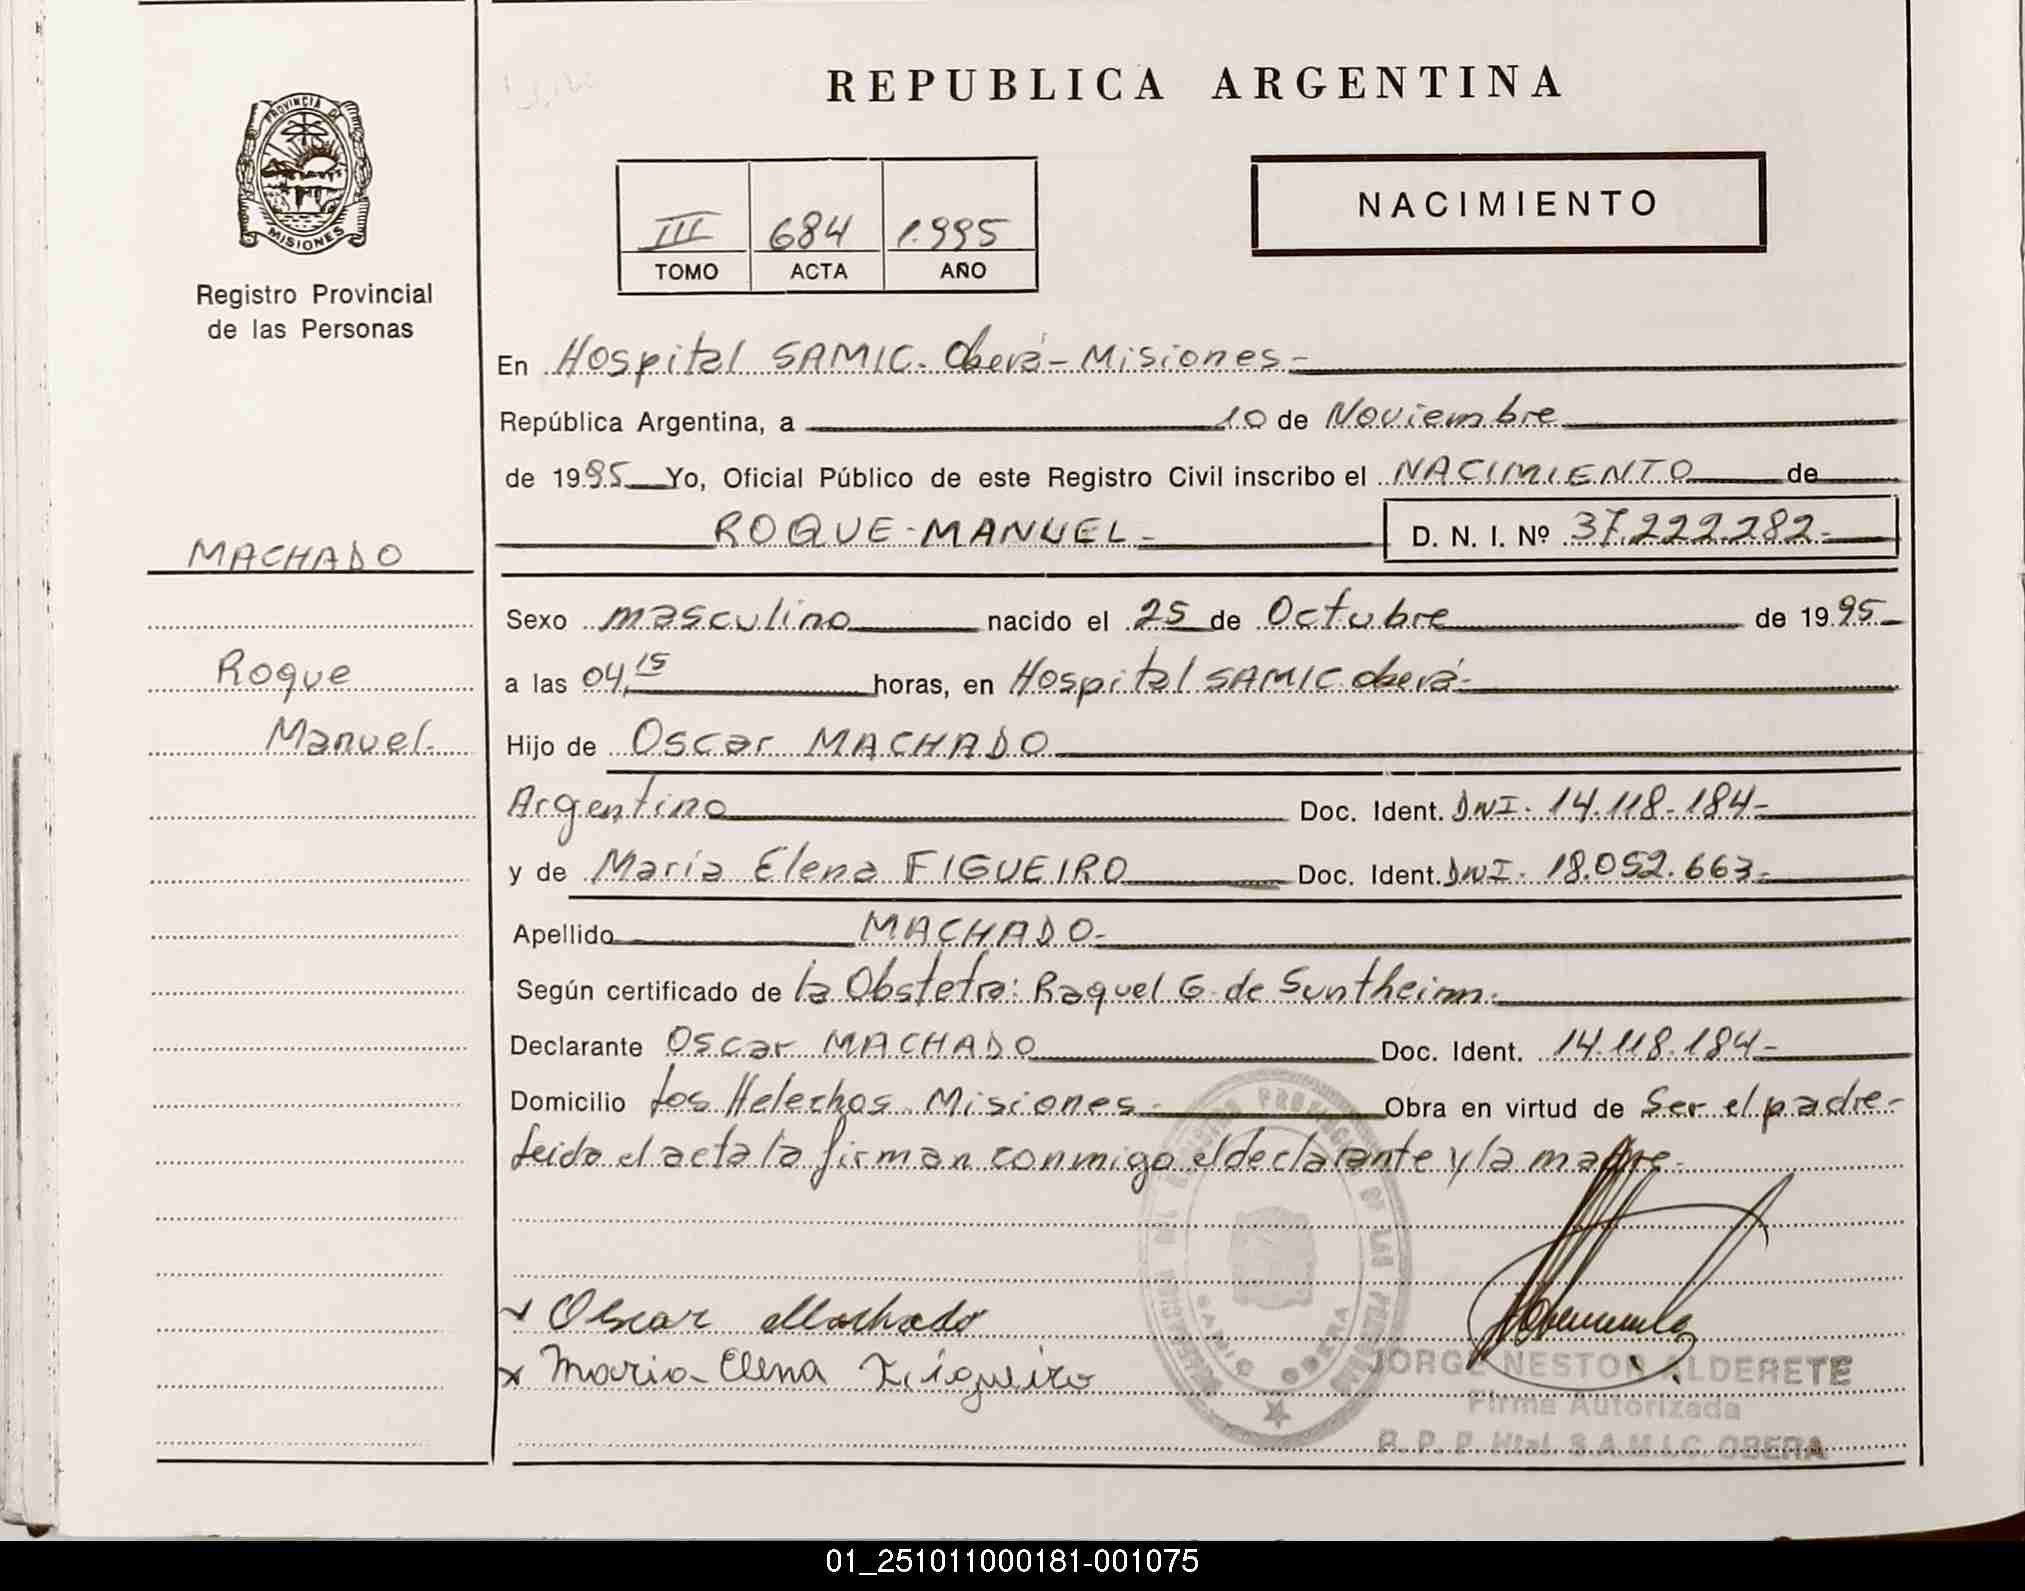 REPUBLICA ARGENTINA
PROVINCIA DE
MISIONES
Registro Provincial
de las Personas
III 684 1.995
TOMO ACTA AÑO
NACIMIENTO
En Hospital SAMIC. Oberá - Misiones.-
República Argentina, a 10 de Noviembre
de 1995 Yo, Oficial Público de este Registro Civil inscribo el NACIMIENTO de
ROQUE - MANUEL - D. N. I. Nº 37.222.282.-
MACHADO
Sexo masculino nacido el 25 de Octubre de 1995
Roque
a las 04,15 horas, en Hospital SAMIC Oberá-
Manuel.
Hijo de Oscar MACHADO
Argentino Doc. Ident. DNI. 14.118.184-
y de María Elena FIGUEIRO Doc. Ident. DNI. 18.052.663-
Apellido MACHADO-
Según certificado de la Obstetra: Raquel G. de Suntheim.
Declarante Oscar MACHADO Doc. Ident. 14.118.184-
Domicilio Los Helechos Misiones- Obra en virtud de Ser el padre-
Leida el acta la firman conmigo el declarante y la madre.-
x Oscar Machado
x Maria Elena Figueiro
JORGE NESTOR ALDERETE
Firma Autorizada
R. P. P. Htal. S.A.M.I.C. OBERA
01_251011000181-001075